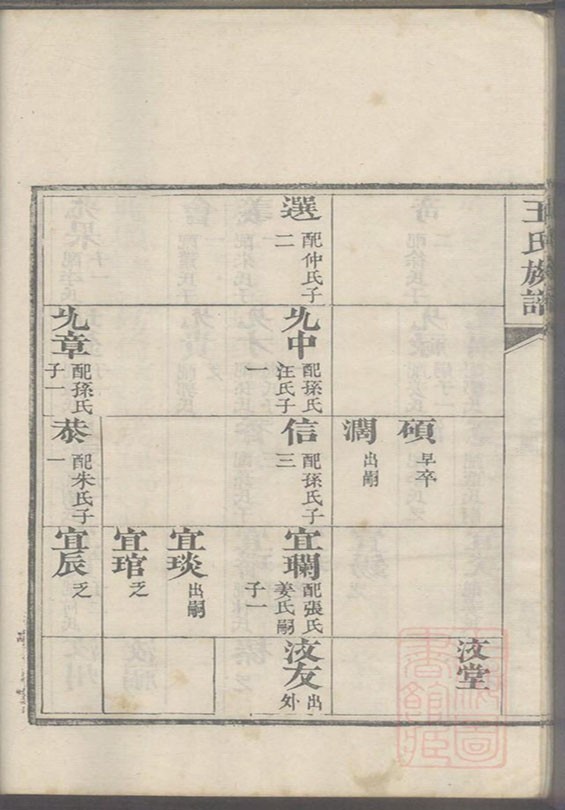 王氏族譜
選 配仲氏子二
允中 配孫氏汪氏子一
允章 配孫氏子一
碩 早卒
濶 出嗣
信 配孫氏子三
恭 配朱氏子一
宜瓓 配張氏姜氏嗣子一
宜琰 出嗣
宜琯 乏
宜辰 乏
汝堂
汝友 出外